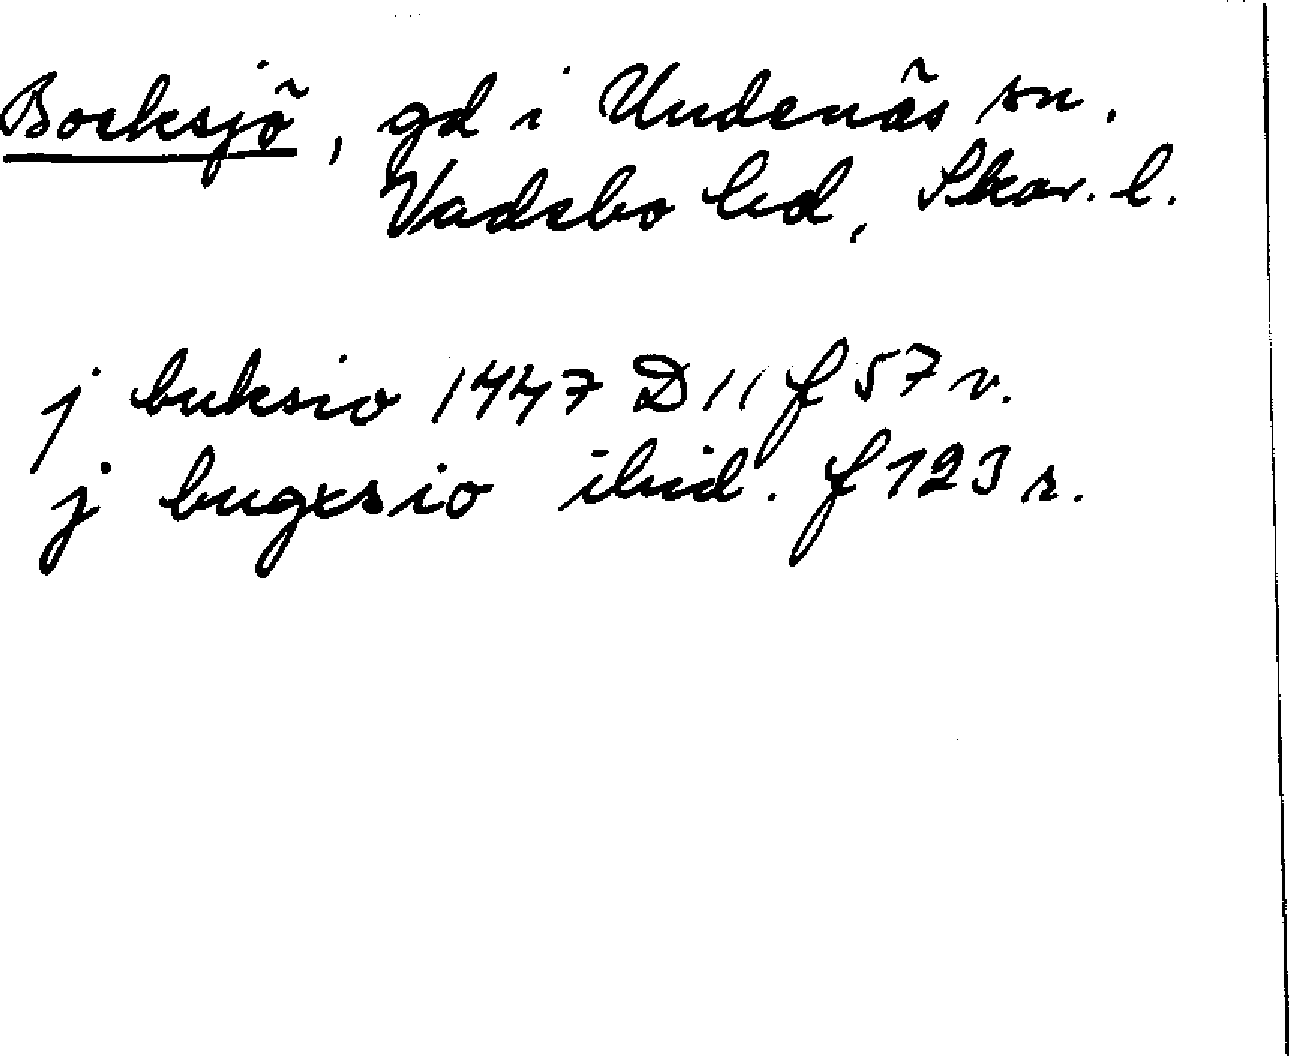 Bocksjö, gd i Undenäs sn.
Vadsbo hd, Skar. l.
j buksio 1447 D 11 f 57 v.
j bugxsio ibid. f 123 r.